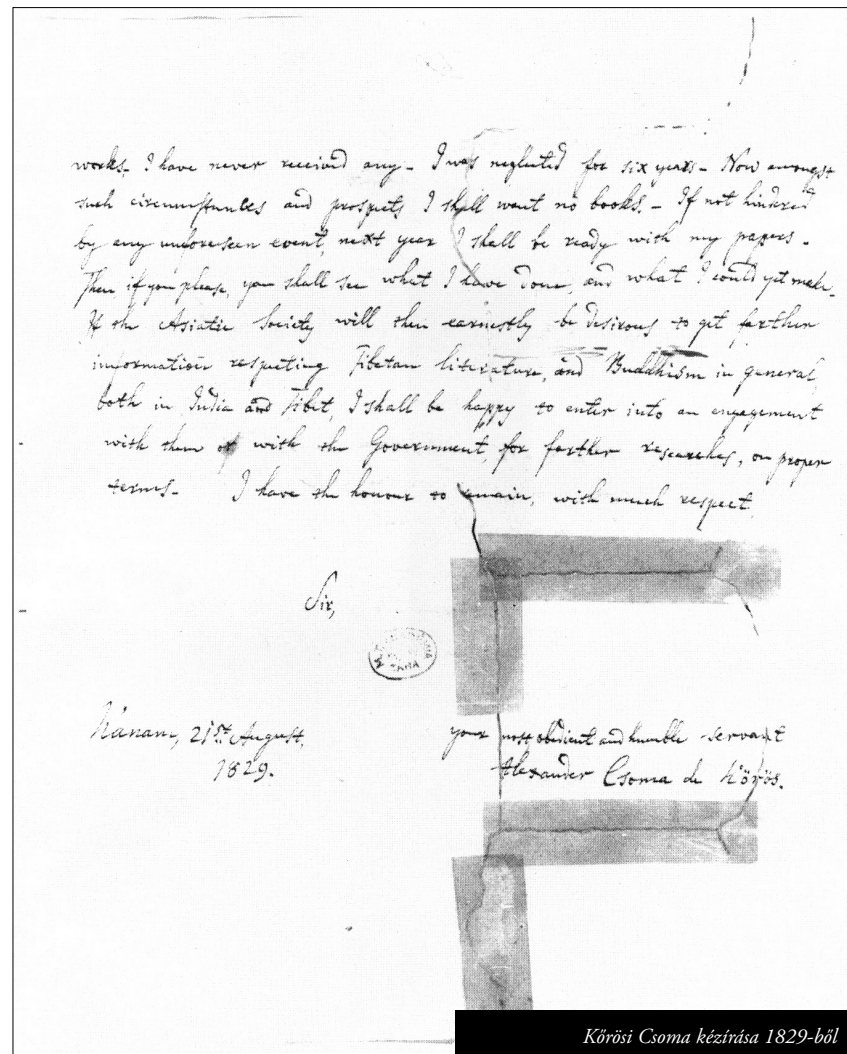 works. I have never received any – I was neglected for six years – Now amongst
such circumstances and prospects I shall want no books. – If not hindred
by any unforeseen event, next year I shall be ready with my papers –
Then, if you please, you shall see what I have done, and what I could yet make.
If the Asiatic Society will then earnestly be desirous to get farther
information respecting Tibetan literature, and Buddhism in general,
both in India and Tibet, I shall be happy to enter into an engagement
with them or with the Government, for farther researches, on proper
terms – I have the honour to remain, with much respect,
Sir,
Kánam, 21st August,
1829.
your most obedient and humble servant
Alexander Csoma de Kőrös.
Kőrösi Csoma kézírása 1829-ből